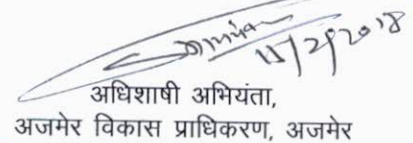 11/2/2018
अधिशाषी अभियंता,
अजमेर विकास प्राधिकरण, अजमेर